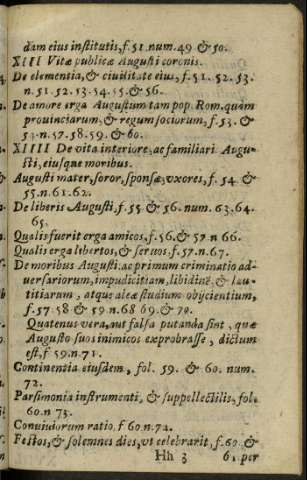 dam eius institutis, f. 51. num. 49 & 50.
XIII Vitæ publicæ Augusti coronis.
De clementia, & ciuilitate eius, f. 51. 52. 53.
n. 51. 52. 53. 54. 55. & 56.
De amore erga Augustum tam pop. Rom. quàm
prouinciarum, & regum sociorum, f. 53. &
53. n. 57. 58. 59. & 60.
XIIII De vita interiore, ac familiari Augu-
sti, eiusque moribus.
Augusti mater, soror, sponsæ, vxores, f. 54 &
55. n. 61. 62.
De liberis Augusti, f. 55 & 56. num. 63. 64.
65.
Qualis fuerit erga amicos, f. 56. & 57. n 66.
Qualis erga libertos, & seruos, f. 57. n. 67.
De moribus Augusti: ac primum criminatio ad-
uersariorum, impudicitiam, libidinē, & lau-
titiarum, atque aleæ studium obijcientium,
f. 57. 58 & 59. n. 68 69. & 70.
Quatenus vera, aut falsa putanda sint, quæ
Augusto suos inimicos exprobrasse, dictum
est, f 59. n. 71.
Continentia eiusdem, fol. 59. & 60. num.
72.
Parsimonia instrumenti, & suppellectilis, fol.
60. n 73.
Conuiuiorum ratio, f 60. n. 74.
Festos, & solemnes dies, vt celebrarit, f. 60. &
Hh 3 61. per